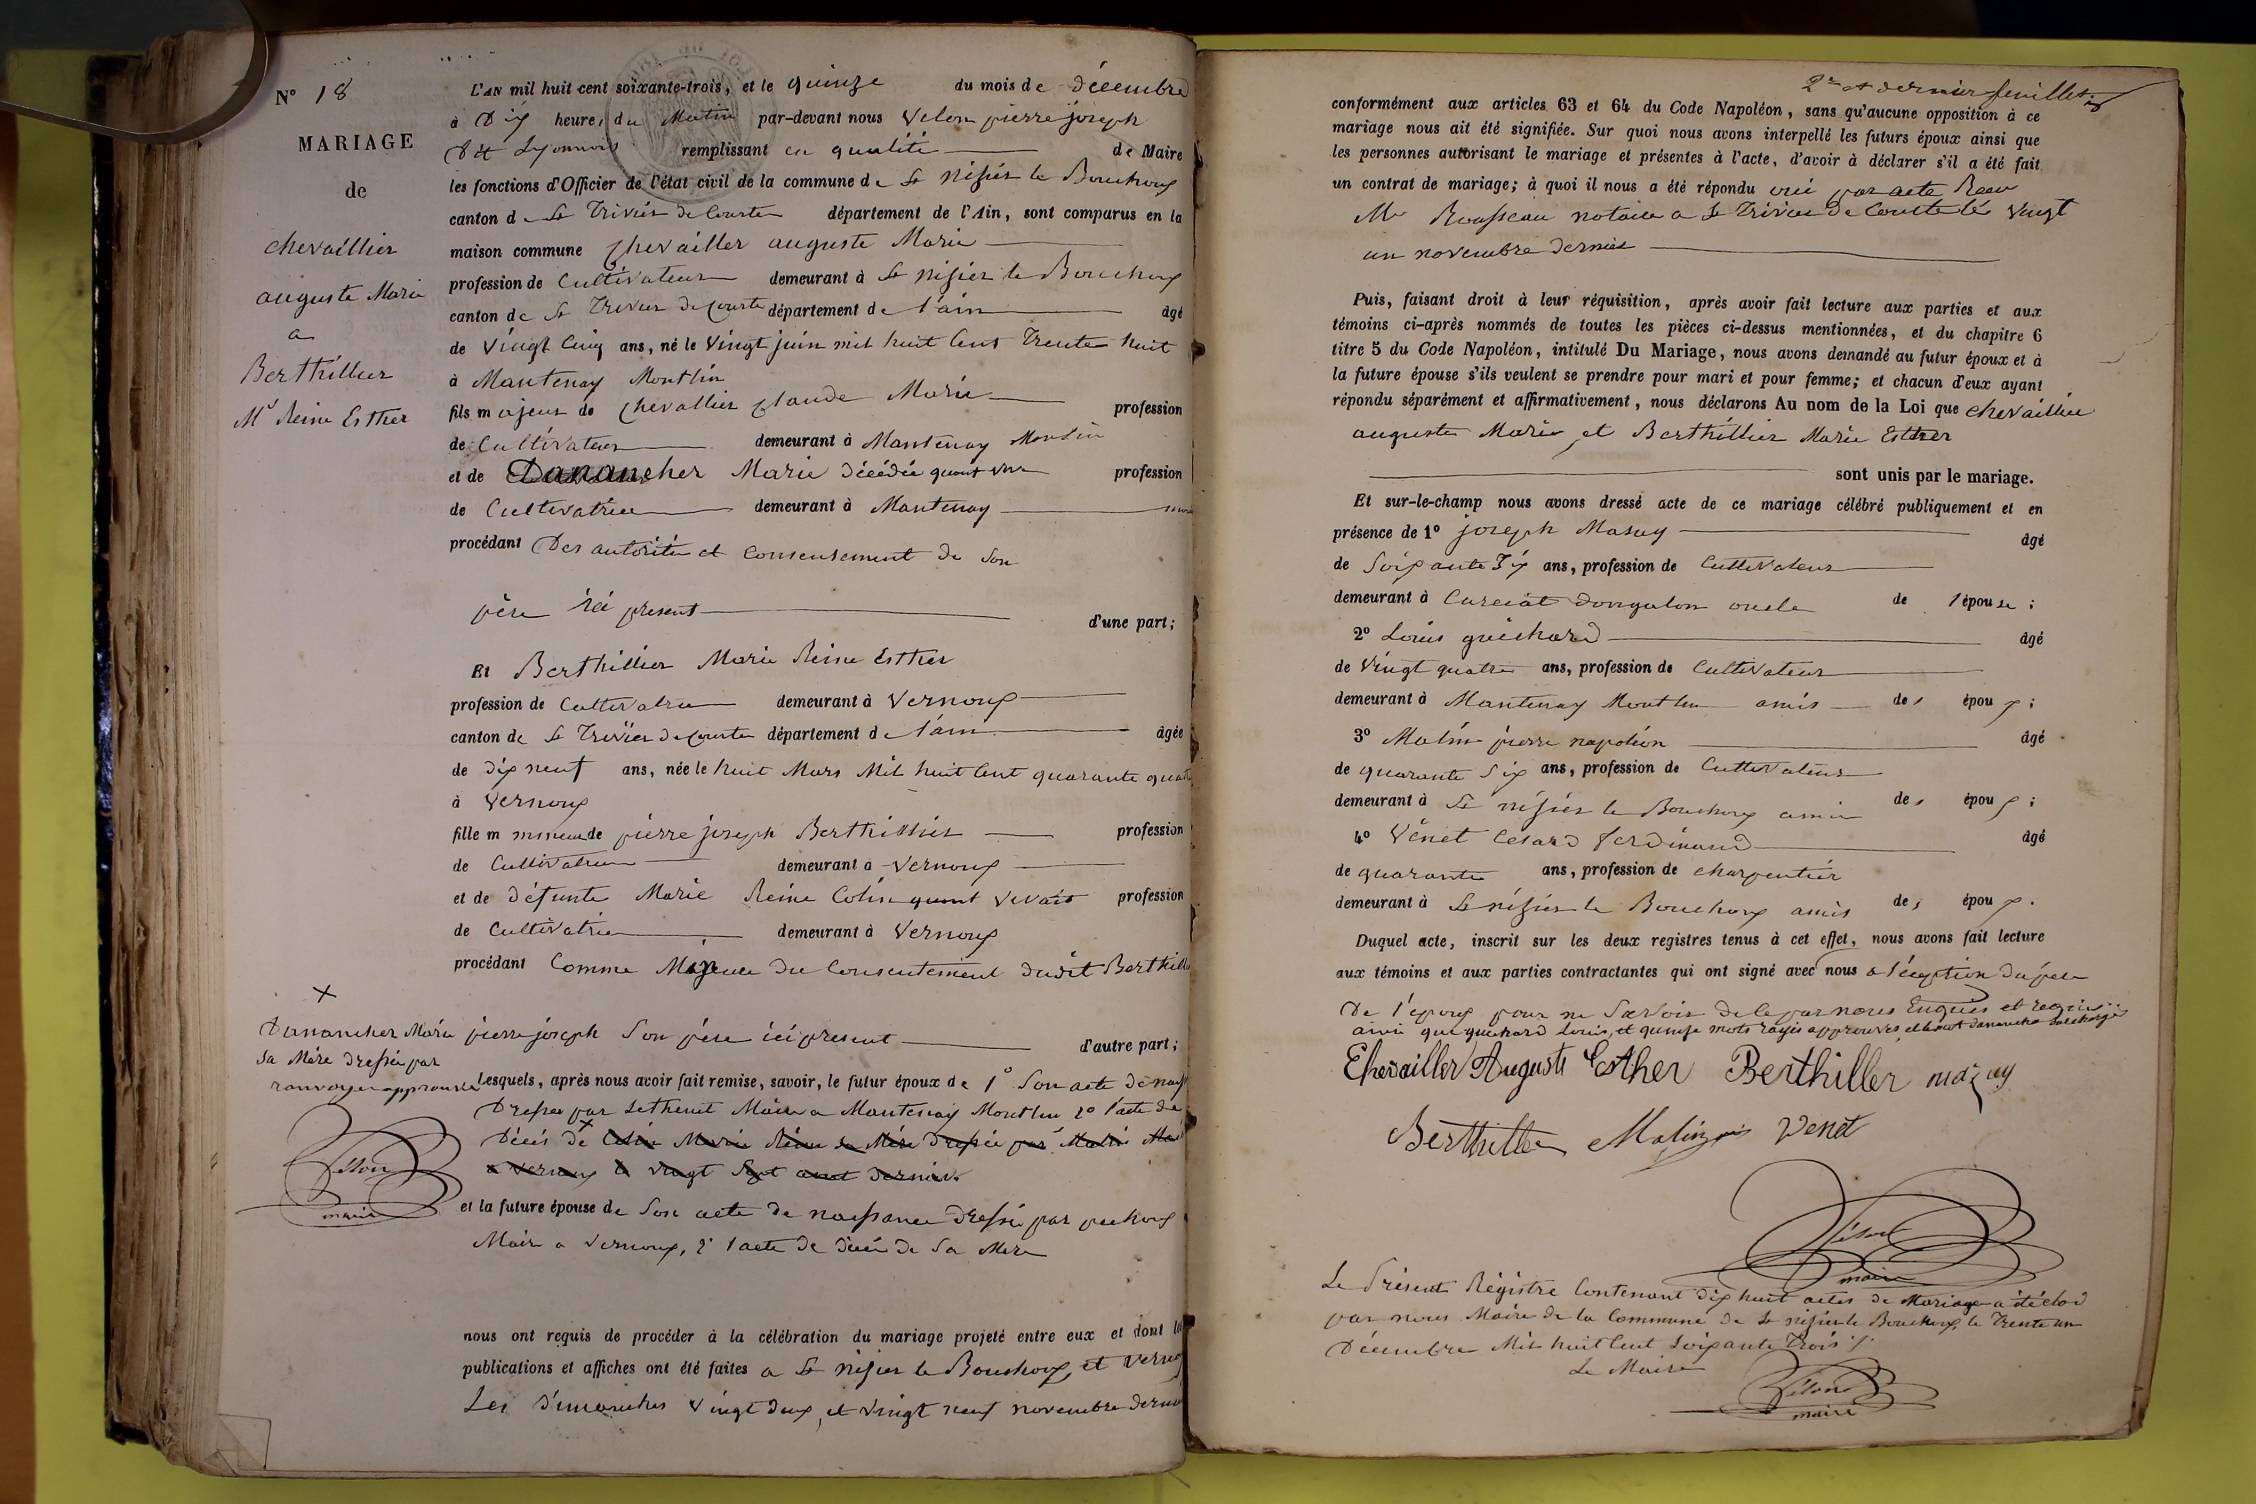 N° 18
MARIAGE
de
chevaillier
auguste Marie
a
Berthillier
Mie Reine Esther
L'AN mil huit cent soixante-trois, et le quinze du mois de décembre
à Dix heures du Matin par-devant nous Velon pierre joseph
Dit Lyonnois remplissant en qualité de Maire
les fonctions d'Officier de l'état civil de la commune de St nisier le Bouchoux
canton de St Trivier de Courtes département de l'Ain, sont comparus en la
maison commune Chevailler auguste Marie
profession de Cultivateur demeurant à St nisier le Bouchoux
canton de St Trivier de Courtes département de l'ain âgé
de Vingt Cinq ans, né le Vingt juin mil huit Cent Trente huit
à Mantenay Montlin
fils majeur de Chevallier Claude Marie profession
de Cultivateur demeurant à Mantenay Monlin
et de Danancher Marie décédée quant vivre profession
de Cultivatrice demeurant à Mantenay
procédant Des autorité et Consensement de Son
père ici present d'une part;
Et Berthillier Marie Reine Esther
profession de Cultivatrice demeurant à Vernoux
canton de St Trivier de Courtes département de l'ain âgée
de dix neuf ans, née le huit Mars Mil huit Cent quarante quatre
à Vernoux
fille m mineure de pierre joseph Berthillier profession
de Cultivatrice demeurant à Vernoux
et de défunte Marie Reine Colin quant vivait profession
de Cultivatrice demeurant à Vernoux
procédant Comme Mineure du Consentement dudit Berthill
x
Danancher Marie
Sa Mère dressée par
ranvoyer approuvé
pierre joseph Son père ici present d'autre part;
Lesquels, après nous avoir fait remise, savoir, le futur époux de 1° Son acte de nais
Dressé par Lethenet Maire a Mantenay Montlin 2° l'acte de
Décès de x Colin Marie Reine sa Mère dressée par Malin Mai
a Vernoux le vingt Sept aout dernier.
Velon
maire
et la future épouse de Son acte de naissance dressé par pochoux
Maire a Vernoux, 2° l'acte de décès de Sa Mère
nous ont requis de procéder à la célébration du mariage projeté entre eux et dont le
publications et affiches ont été faites a St nisier le Bouchoux, et Vernoux
Les dimanches Vingt deux, et Vingt neuf novembre dernier
2me et dernier feuillet
conformément aux articles 63 et 64 du Code Napoléon, sans qu'aucune opposition à ce
mariage nous ait été signifiée. Sur quoi nous avons interpellé les futurs époux ainsi que
les personnes autorisant le mariage et présentes à l'acte, d'avoir à déclarer s'il a été fait
un contrat de mariage; à quoi il nous a été répondu oui par acte Recu
Me Rousseau notaire a St Trivier de Courtes le Vingt
un novembre dernier
Puis, faisant droit à leur réquisition, après avoir fait lecture aux parties et aux
témoins ci-après nommés de toutes les pièces ci-dessus mentionnées, et du chapitre 6
titre 5 du Code Napoléon, intitulé Du Mariage, nous avons demandé au futur époux et à
la future épouse s'ils veulent se prendre pour mari et pour femme; et chacun d'eux ayant
répondu séparément et affirmativement, nous déclarons Au nom de la Loi que chevaillier
auguste Marie, et Berthillier Marie Esther
sont unis par le mariage.
Et sur-le-champ nous avons dressé acte de ce mariage célébré publiquement et en
présence de 1° joseph Masuy âgé
de Soixante Dix ans, profession de Cultivateur
demeurant à Curciat dongalon oncle de l'épouse;
2° Louis guichard âgé
de Vingt quatre ans, profession de Cultivateur
demeurant à Mantenay Montlin amis des époux;
3° Malin pierre napoléon âgé
de quarante Six ans, profession de Cultivateur
demeurant à St nisier le Bouchoux amis des époux;
4° Vénet César Ferdinand âgé
de quarante ans, profession de charpentier
demeurant à St nisier le Bouchoux amis des époux.
Duquel acte, inscrit sur les deux registres tenus à cet effet, nous avons fait lecture
aux témoins et aux parties contractantes qui ont signé avec nous a l'exeption du père
De l'époux pour ne Savoir de le par nous Enquis et requis
ainsi que guichard Louis, et quinze mots rayés approuvés, et le mot dananche surchargé
Chevailler Auguste Esther Berthiller mazuy
Berthiller Malin Venet
Velon
maire
Le Présent Régistre Contenant dix huit actes de Mariage a été clos
par nous Maire de la Commune de St nisier le Bouchoux, le Trente un
Décembre Mil huit Cent Soixante Trois ./.
Le Maire
Velon
maire